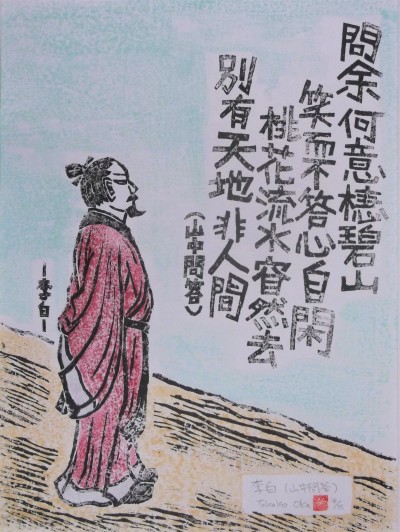 問余何意棲碧山
笑而不答心自閑
桃花流水窅然去
別有天地非人間
(山中問答)
ー李白ー
李白(山中問答)